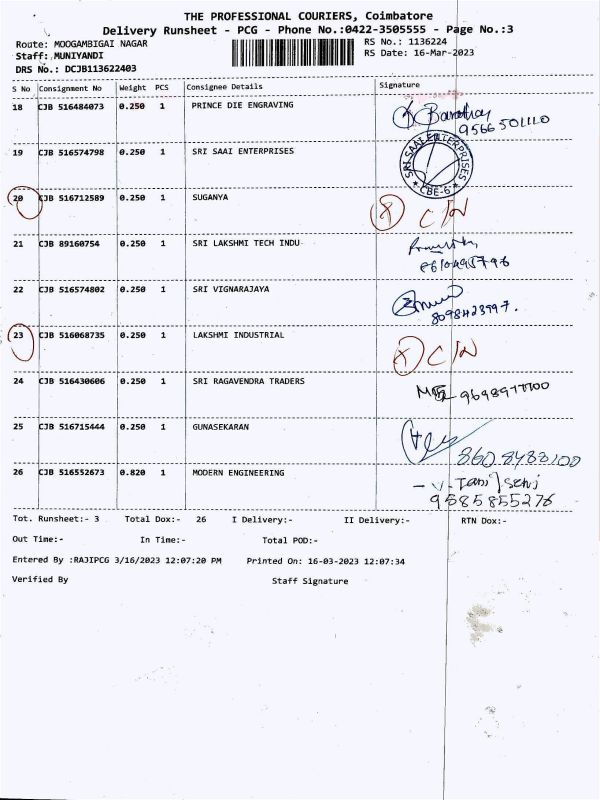 THE PROFESSIONAL COURIERS, Coimbatore
Delivery Runsheet - PCG - Phone No.:0422-3505555 - Page No.:3
Route: MOOGAMBIGAI NAGAR RS No.: 1136224
Staff: MUNIYANDI RS Date: 16-Mar-2023
DRS No.: DCJB113622403
S No Consignment No Weight PCS Consignee Details Signature
18 CJB 516484073 0.250 1 PRINCE DIE ENGRAVING
9566 501110
19 CJB 516574798 0.250 1 SRI SAAI ENTERPRISES SRI SAAI ENTERPRISES CBE-6
20 CJB 516712589 0.250 1 SUGANYA
21 CJB 89160754 0.250 1 SRI LAKSHMI TECH INDU
22 CJB 516574802 0.250 1 SRI VIGNARAJAYA
8098423997.
23 CJB 516068735 0.250 1 LAKSHMI INDUSTRIAL
24 CJB 516430606 0.250 1 SRI RAGAVENDRA TRADERS
25 CJB 516715444 0.250 1 GUNASEKARAN
860 8488100
26 CJB 516552673 0.820 1 MODERN ENGINEERING
9585855276
Tot. Runsheet:- 3 Total Dox:- 26 I Delivery:- II Delivery:- RTN Dox:-
Out Time:- In Time:- Total POD:-
Entered By :RAJIPCG 3/16/2023 12:07:20 PM Printed On: 16-03-2023 12:07:34
Verified By Staff Signature